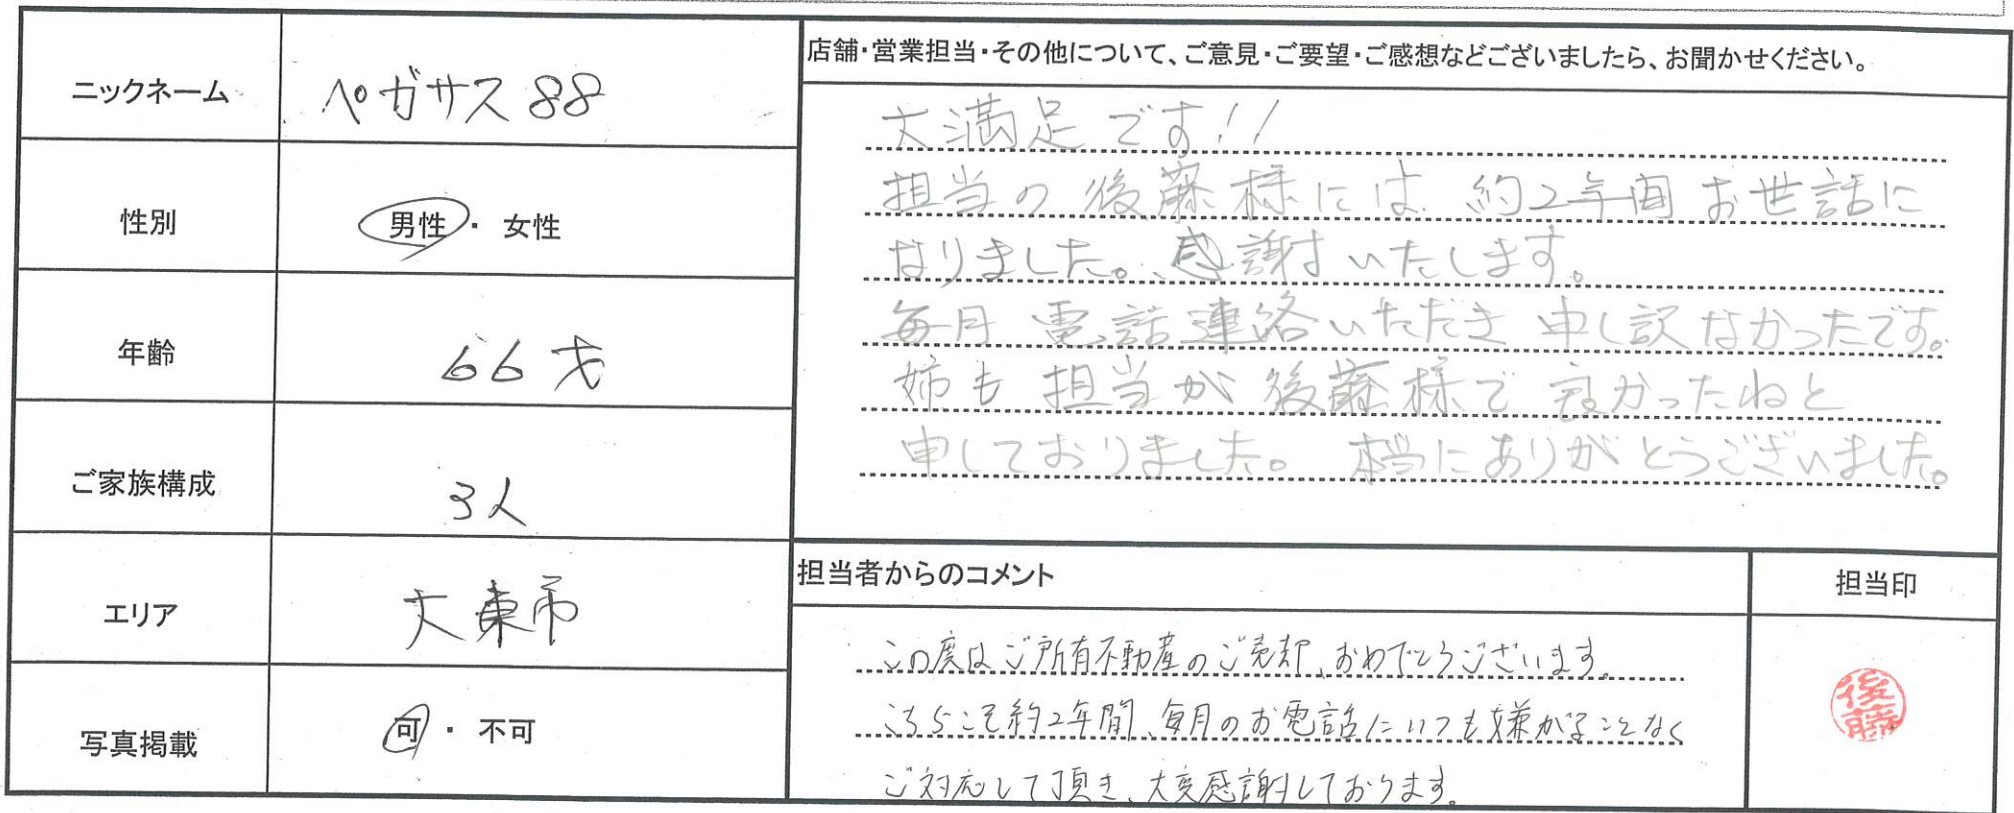 ニックネーム
ペガサス88
性別
男性・女性
年齢
66才
ご家族構成
3人
エリア
大東市
写真掲載
可・不可
店舗・営業担当・その他について、ご意見・ご要望・ご感想などございましたら、お聞かせください。
大満足です!!
担当の後藤様には約2年間お世話に
なりました。感謝いたします。
毎月電話連絡いただき申し訳なかったです。
姉も担当が後藤様で良かったねと
申しておりました。本当にありがとうございました。
担当者からのコメント
この度はご所有不動産のご売却、おめでとうございます。
こちらこそ約2年間、毎月のお電話にいつも嫌がることなく
ご対応して頂き、大変感謝しております。
担当印
後藤